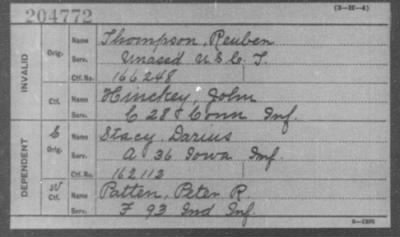 204772
(3-257-A)
INVALID
Orig. Name Thompson, Reuben
Serv. Unased U S C. T.
Ctf. No. 166248
Ctf. Name Hinckey, John
Serv. C 28 Conn Inf.
DEPENDENT
Orig. Name Stacy, Darius
Serv. A 36 Iowa Inf.
Ctf. No. 162112
W Ctf. Name Patten, Peter R.
Serv. F 93 Ind Inf.